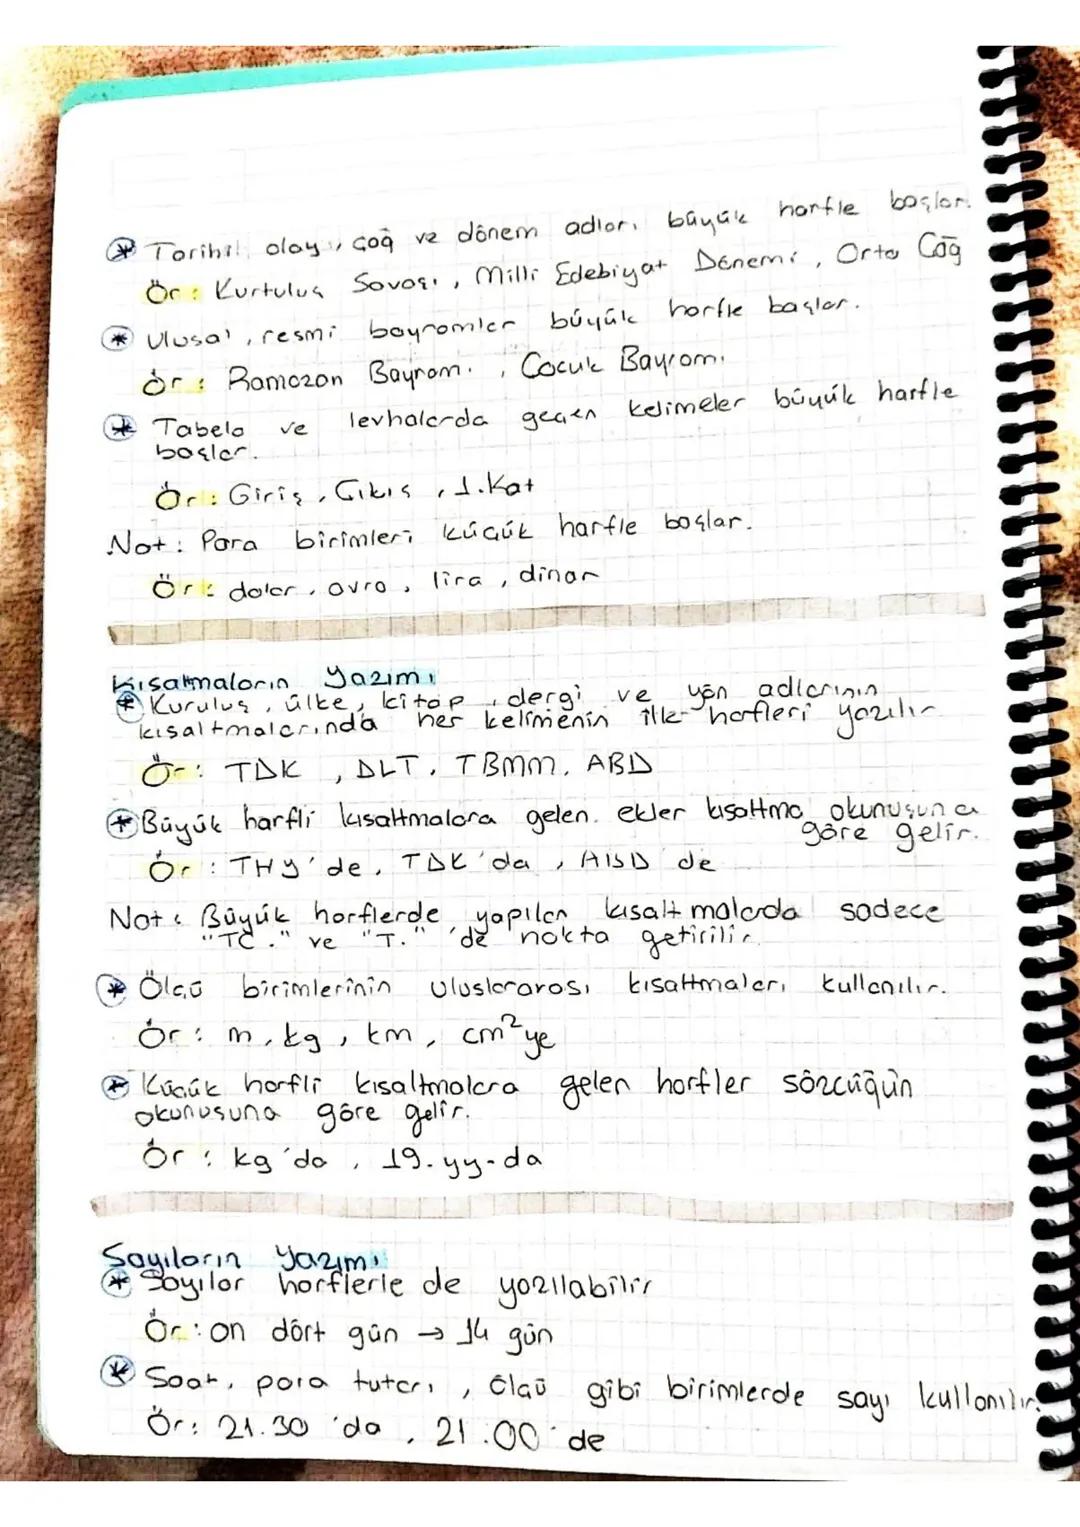 * Tarihi olay, çağ ve dönem adları büyük harfle başlar.
Ör: Kurtuluş Savaşı, Milli Edebiyat Dönemi, Orta Çağ
* Ulusal, resmi bayramlar büyük harfle başlar.
Ör: Ramazan Bayramı, Çocuk Bayramı
* Tabela ve levhalarda geçen kelimeler büyük harfle
başlar.
Ör: Giriş, Çıkış, 1.Kat
Not: Para birimleri küçük harfle başlar.
Ör: dolar, avro, lira, dinar
Kısaltmaların Yazımı
* Kuruluş, ülke, kitap, dergi ve yön adlarının
kısaltmalarında her kelimenin ilk harfleri yazılır
Ör: TDK, DLT, TBMM, ABD
* Büyük harfli kısaltmalara gelen ekler kısaltma okunuşuna
göre gelir.
Ör: THY'de, TDK'da, ABD'de
Not: Büyük harflerde yapılan kısaltmalarda sadece
"TC." ve "T." 'de nokta getirilir.
* Ölçü birimlerinin uluslararası kısaltmaları kullanılır.
Ör: m, kg, km, cm²ye
* Küçük harfli kısaltmalara gelen harfler sözcüğün
okunuşuna göre gelir.
Ör: kg'da, 19.yy-da
Sayıların Yazımı
* Sayılar harflerle de yazılabilir
Ör: on dört gün → 14 gün
* Saat, para tutarı, ölçü gibi birimlerde sayı kullanılır.
Ör: 21.30'da, 21.00'de